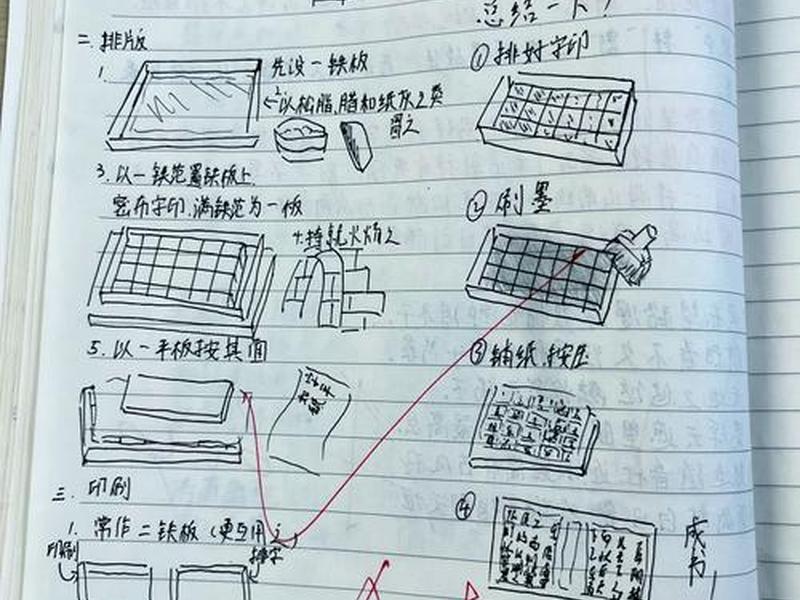 二 排版
1. 先设一铁板
2 以松脂、腊和纸灰之类
冒之
3. 以一铁范置铁板上
密布字印.满铁范为一板
4. 持就火炀之
5. 以一平板按其面
三. 印刷
1. 常作二铁板(更互用之)
印刷
排字
总结一下!
① 排好字印
② 刷墨
③ 铺纸、按压
④
成书